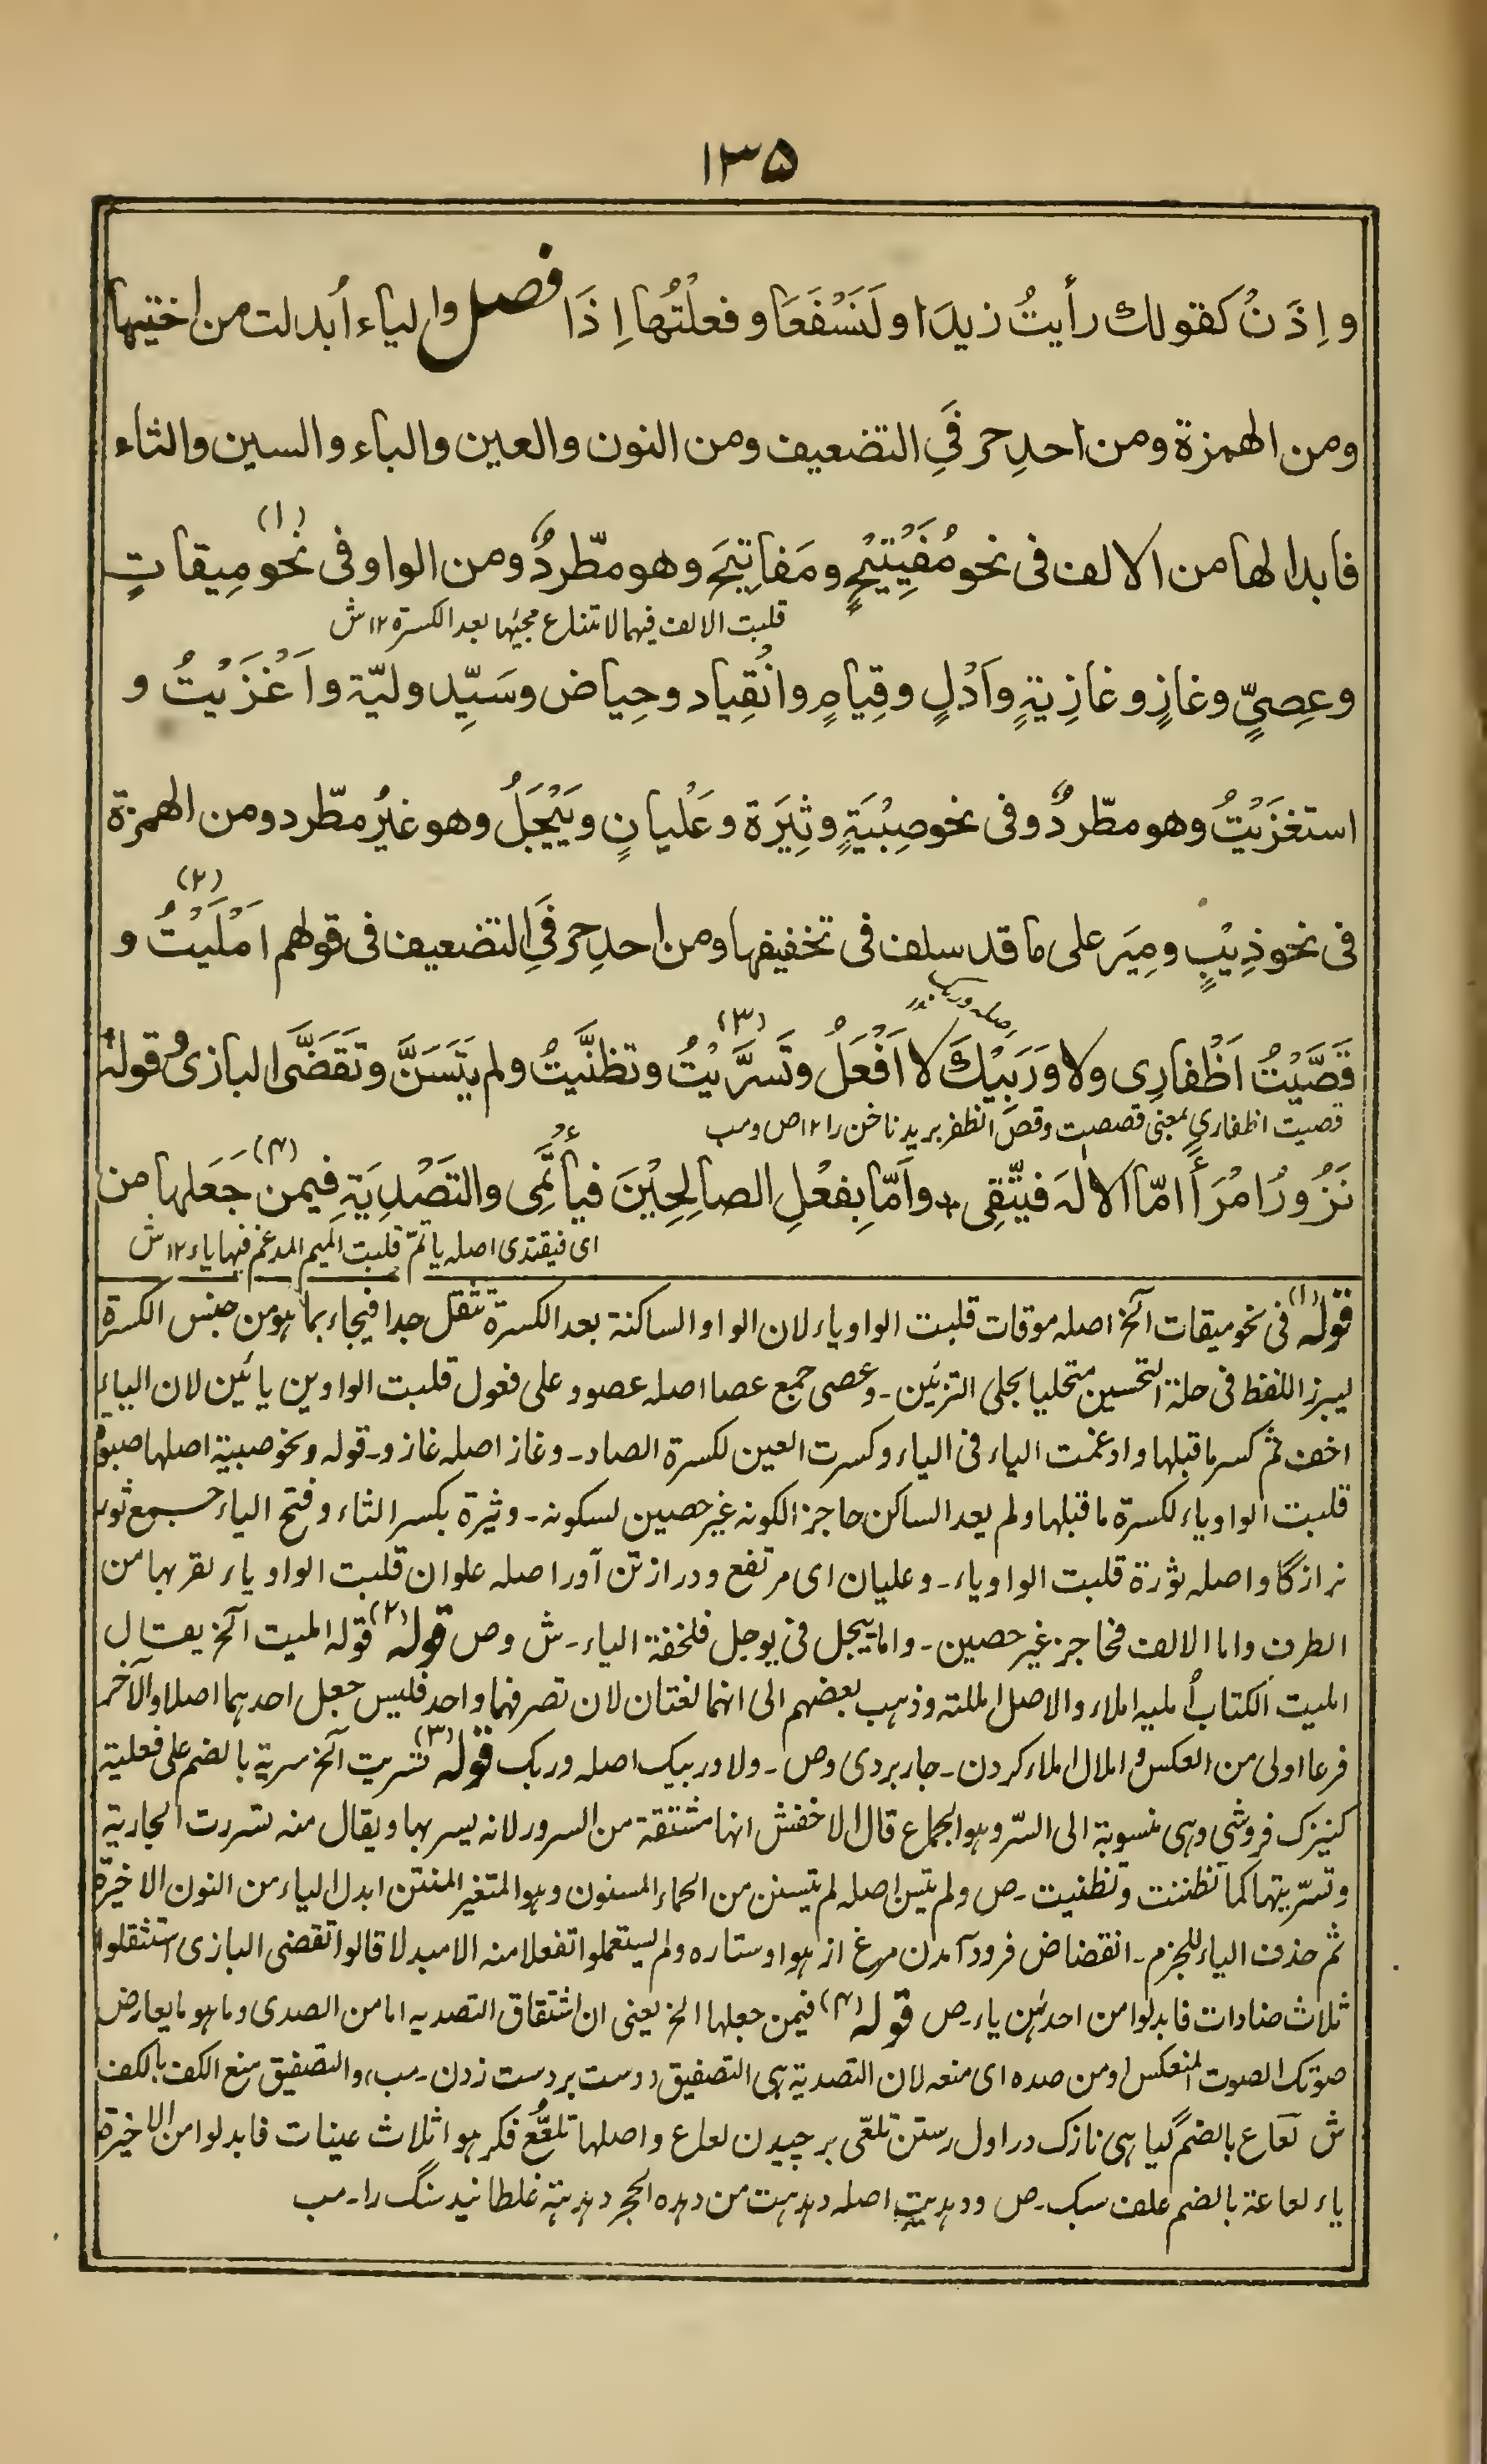 ١٣٥
و اِذَنْ كقولك رأيتُ زيدَا و لَنَسْفَعَا و فعلْتُها اِذَا فصل والياء أُبدلت من اختيها
ومن الهمزة ومن احدِ حرفَيِ التضعيف ومن النون والعين والباء والسين والثاء
فابدالها من الالف فى نحو مُفَيْتِيْحٍ ومَفاتِيْحَ وهو مطّردٌ ومن الواو فى نحو مِيقاتٍ (١)
قلبت الالف فيهما لامتناع مجيئها بعد الكسرة ١٢ ش
وعِصِيٍّ وغازٍ وغازِيةٍ وَاَدْلٍ وقِيامٍ وانْقِياد وحِياض وسَيِّد وليّة واَغْزَيْتُ و
استغزَيْتُ وهو مطّردٌ وفى نحو صِبْيَةٍ وثِيَرَة وعَلْيانٍ ويَيْجَلُ وهو غيرُ مطّرد ومن الهمزة
فى نحو ذِيْبٍ ومِيَر على ما قد سلف فى تخفيفها ومن احدِ حرفَيِ التضعيف فى قولهم اَمْلَيْتُ (٢) و
اصله وربك
قَصَّيْتُ اَظْفارِى ولا وَرَبِيْكَ لا اَفْعَلُ وتَسرَّيْتُ (٣) وتظنَّيتُ ولم يتَسَنَّ وتَقَضَّى البازى وقولهٗ
قصيت اظفاري بمعنى قصصت وقصّ الظفر بريد ناخن را ١٢ ص و مب
نَزُورُ امْرَأً امّا الالٰهَ فيتّقِى، وَاَمّا بِفعْلِ الصالِحِيْنَ فيأتَمِى والتَصْدِيَةِ فيمن جَعَلها (٤) من
اى فيقتدى اصله ياتمّ قلبت الميم المدغم فيها ياء ١٢ ش
قوله (١) فى نحو ميقات آلخ اصله موقات قلبت الواو ياء لان الواو الساكنة بعد الكسرة تثقل جدا فيجاء بما هو من جنس الكسرة
ليبرز اللفظ فى حلة التحسين متحليا بحلى التزيّن ـ وعصى جمع عصا اصله عصوو على فعول قلبت الواوين يائين لان الياء
اخف ثم كسر ما قبلها وادغمت الياء فى الياء وكسرت العين لكسرة الصاد ـ وغاز اصله غازو ـ قوله ونحو صبية اصلها صبوة
قلبت الواو ياء لكسرة ما قبلها ولم يعد الساكن حاجزا لكونه غير حصين لسكونه ـ وثيرة بكسر الثاء وفتح الياء جمع ثور
نرازگا و اصله ثورة قلبت الواو ياء ـ وعليان اى مرتفع و دراز تن آور اصله علوان قلبت الواو ياء لقربها من
الطرف واما الالف فحاجز غير حصين ـ واما ييجل فى يوجل فلخفة الياء ـ ش وص قوله (٢) قوله امليت آلخ يقال
امليت الكتاب أمليه املاء والاصل امللته وذهب بعضهم الى انهما لغتان لان تصرفهما واحد فليس جعل احدهما اصلا والآخر
فرعا اولى من العكس و املال املاء كردن ـ جاربردى وص ـ ولا وربيك اصله وربك قوله (٣) تسريت آلخ سرية بالضم على فعلية
كنيزك فروشى وهى منسوبة الى السّر وهو الجماع قال الاخفش انها مشتقة من السرور لانه يسر بها ويقال منه تسررت الجارية
وتسرّيتها كما تظننت وتظنيت ـ ص ولم يتسن اصله لم يتسنن من الحماء المسنون وهو المتغير المنتن ابدل الياء من النون الاخيرة
ثم حذف الياء للجزم ـ انقضاض فرود آمدن مرغ از هوا و ستاره ولم يستعملوا تفعلا منه الا مبدلا قالوا تقضى البازى استثقلوا
ثلاث ضادات فابدلوا من احدٰهن ياء ـ ص قوله (٤) فيمن جعلها الخ يعنى ان اشتقاق التصديه اما من الصدى وما هو ما يعارض
صوتك الصوت المنعكس او من صده اى منعه لان التصدية هى التصفيق و دست بر دست زدن ـ مب، والتصفيق منع الكف بالكف
ش لعاع بالضم گيا هى نازك در اول رستن تلعّى برچيدن لعاع واصلها تلعُّع فكرهوا ثلاث عينات فابدلوا من الاخيرة
ياء لعاعة بالضم علف سبك ـ ص ودهديت اصله دهدهت من دهده الحجر دهدهة غلطانيد سنگ را ـ مب